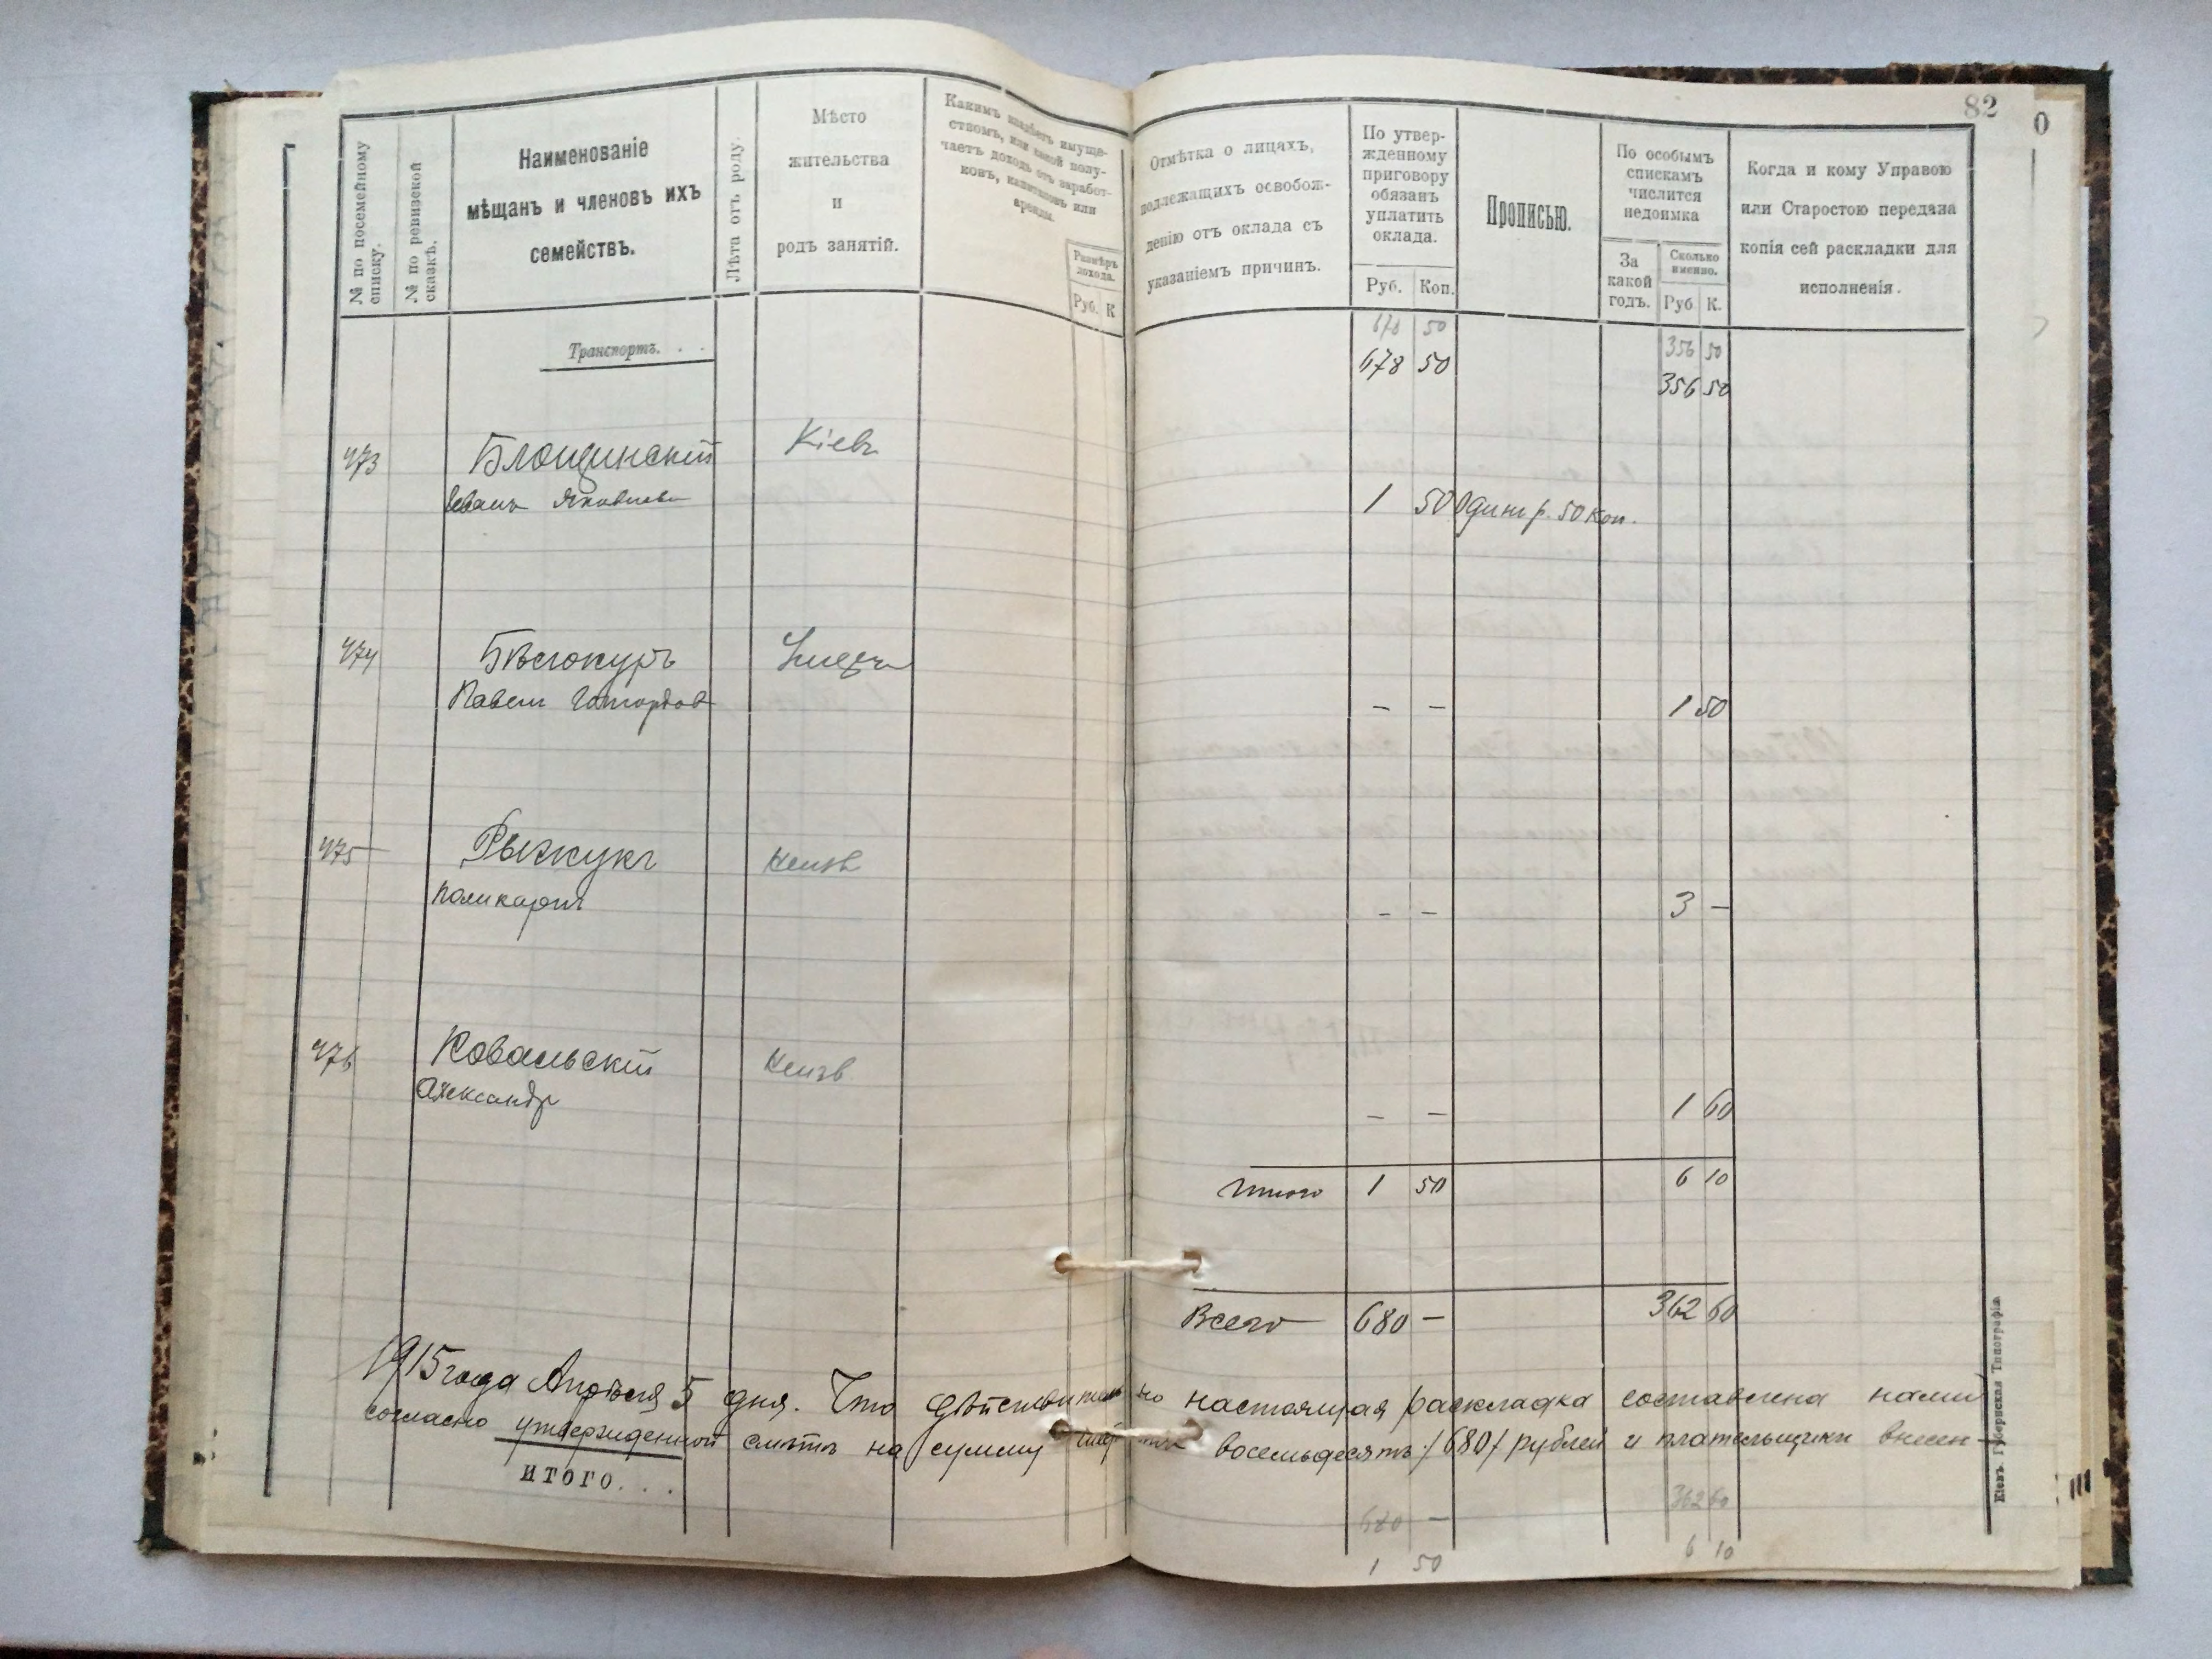 82
0
№ по посемейному списку.
№ по ревизской сказкѣ.
Наименованіе
мѣщанъ и членовъ ихъ
семействъ.
Лѣта отъ роду.
Мѣсто
жительства
и
родъ занятій.
Какимъ владѣетъ имуще-
ствомъ, или какой полу-
чаетъ доходъ отъ заработ-
ковъ, капиталовъ или
аренды.
Размѣръ
дохода.
Руб. К
Отмѣтка о лицахъ,
подлежащихъ освобож-
денію отъ оклада съ
указаніемъ причинъ.
По утвер-
жденному
приговору
обязанъ
уплатить
оклада.
Руб. Коп.
Прописью.
По особымъ
спискамъ
числится
недоимка
За
какой
годъ.
Сколько
именно.
Руб К.
Когда и кому Управою
или Старостою передана
копія сей раскладки для
исполненія.
678 50
356 50
Транспортъ. . .
678 50
356 50
473 Блощинскій Кіевъ
Иванъ Яковлевъ 1 50 Одинъ р. 50 коп.
474 Бѣлокуръ
Павелъ — — 1 50
475 Рыжукъ Неизв
Поликарпъ — — 3 —
476 Ковальскій Неизв
Александр — — 1 60
Итого 1 50 6 10
Всего 680 — 362 60
1915 года Апрѣля 5 дня. Что дѣйствительно настоящая раскладка составлена нами
согласно утвержденной смѣтѣ на сумму восемьдесятъ /680/ рублей и плательщики внесен-
ИТОГО. . .
362 60
680 —
6 10
1 50
Кіевъ. Губернская Типографія